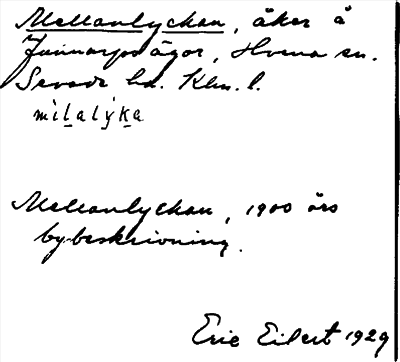 Mellanlyckan, åker å
Jönnarps ägor, Hvena sn.
Sevede hd. Klm. l.
mìlalýka
Mellanlyckan, 1900 års
bybeskrivning.
Eric Eilert 1929